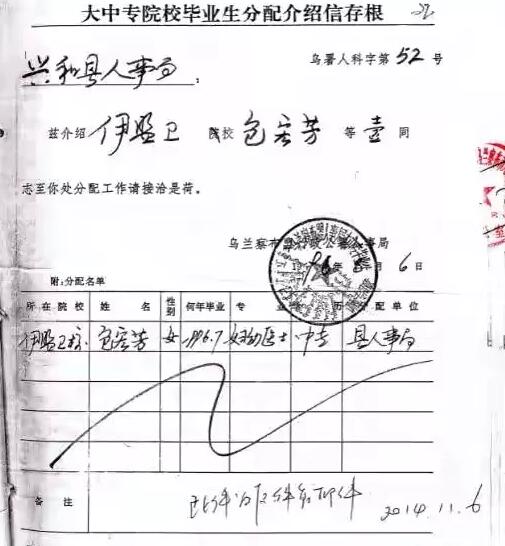 大中专院校毕业生分配介绍信存根
乌署人科字第52号
兴和县人事局：
兹介绍 伊盟卫 院校 包宏芳 等 壹 同
志至你处分配工作请接洽是荷。
乌兰察布盟 事局
96年 月6日
附：分配名单
所在院校 姓名 性别 何年毕业 专业 历 分配单位
伊盟卫校 包宏芳 女 1996.7 妇幼医士 中专 县人事局
备注
2014.11.6